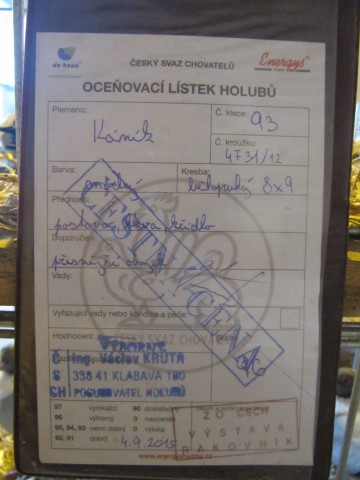 de heus
ČESKÝ SVAZ CHOVATELŮ
Energys
OCEŇOVACÍ LÍSTEK HOLUBŮ
Plemeno:
Káník
Č. klece: 93
Č. kroužku:
4731/12
Barva:
Kresba:
bělopruhý 8x9
Přednosti:
postava, hlava, křídlo
Doporučení:
přesnější obojek
Vady:
ČESTNÁ CENA
Vyřazující vady nebo kondice a péče:
Hodnocení:
VÝBORNÝ
96
ČESKÝ SVAZ CHOVATELŮ
Ing. Václav KRŮTA
338 41 KLABAVA 180
POSUZOVATEL HOLUBŮ
97 vynikající 90 dostatečný
96 výborný 0 neoceněn
95, 94, 93 velmi dobrý 0 výluka
92, 91 dobrý
4.9.2015
ZO ČSCH
VÝSTAVA
RAKOVNÍK